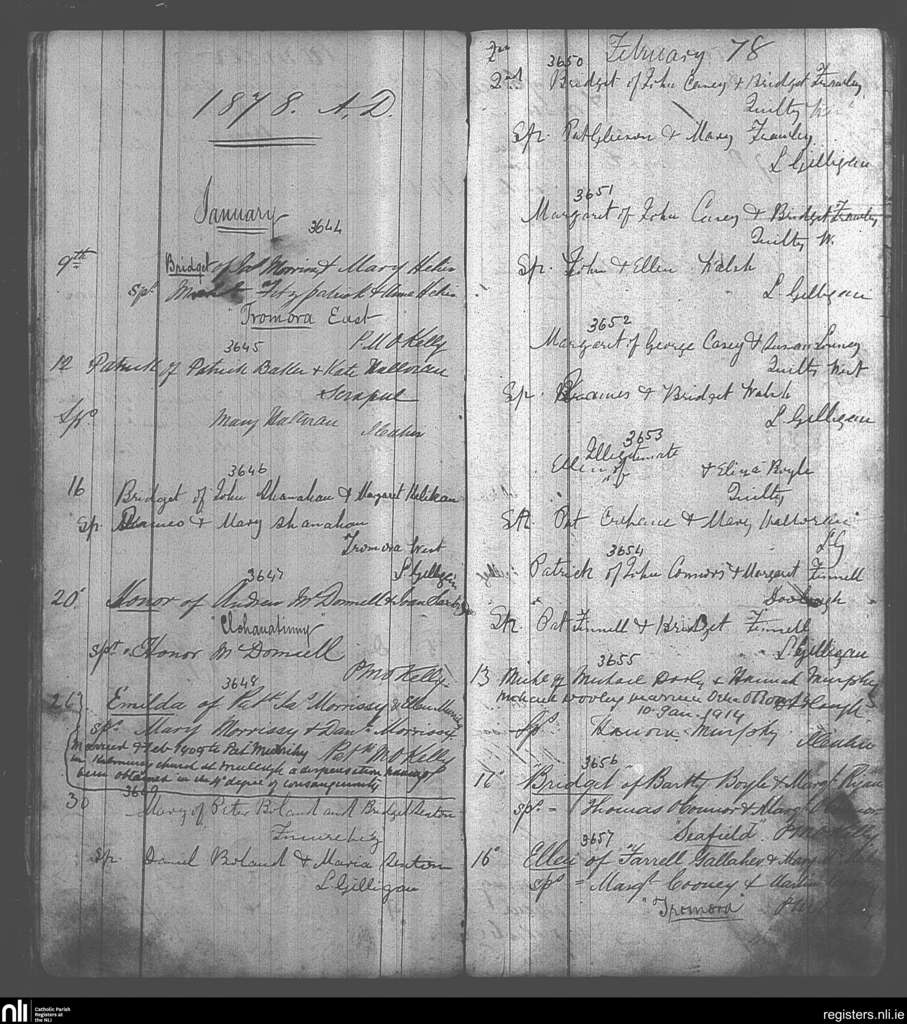 1878. A.D.
January
3644
9th Bridget of Jas Morrissy & Mary Hehir
Sps Fitzpatrick & Anne Hehir
Tromora East
P. M O Kelly
3645
12 Patrick of Patrick Baker & Kate Halloran
Sps Mary Halloran
3646
16 Bridget of John Shanahan & Margaret
Sp James & Mary Shanahan
Tromora West
L Gilligan
3647
20 Honor of Andrew McDonnell &
Clohauatinny
Sps Honor McDonnell
PMOKelly
3648
26 Emilda of Morrissy & Ellen
Sps Mary Morrissy & Danl Morrissy
Married 4 Feb 1909 to Pat
in church at a dispensation having
been obtained in the degree of consanguinity
Patk M O Kelly
3649
30 Mary of Peter Boland and Bridget Sexton
Sp Daniel Boland & Maria Sexton
L Gilligan
February 78
3650
2nd Bridget of John Casey & Bridget Frawley
Quilty W
Sp. Pat Gleeson & Mary Frawley
L Gilligan
3651
Margaret of John Casey & Bridget Frawley
Quilty W.
Sp. John & Ellen Walsh
L. Gilligan
3652
Margaret of George Casey & Susan
Quilty West
Sp. James & Bridget Walsh
L Gilligan
3653
Illegitimate
Ellen of & Eliza Boyle
Quilty
Sps Pat & Mary Halloran
LG
3654
Patrick of John Connors & Margaret Finnell
Sps Pat Finnell & Bridget Finnell
L Gilligan
3655
13 Michl of Michael Dooly & Hannah Murphy
Michael Dooley married
10 Jan. 1914
Sps Hanora Murphy
3656
16 Bridget of Bartly Boyle & Margt Ryan
Sps - Thomas OConnor & Margt OConnor
Seafield PMOKelly
3657
16 Ellen of Farrell Gallaher & Mary
Sps - Margt Cooney & Martin
Tromora
nli
Catholic Parish
Registers at
the NLI
registers.nli.ie